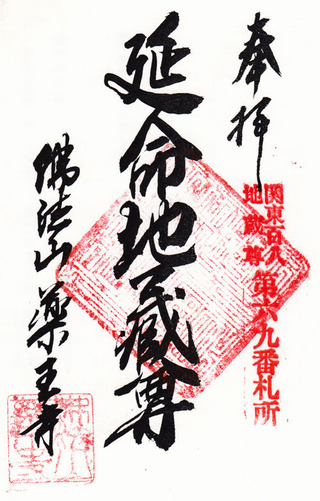 奉拝
関東百八
地蔵尊
第六九番札所
延命地蔵尊
佛法山 薬王寺